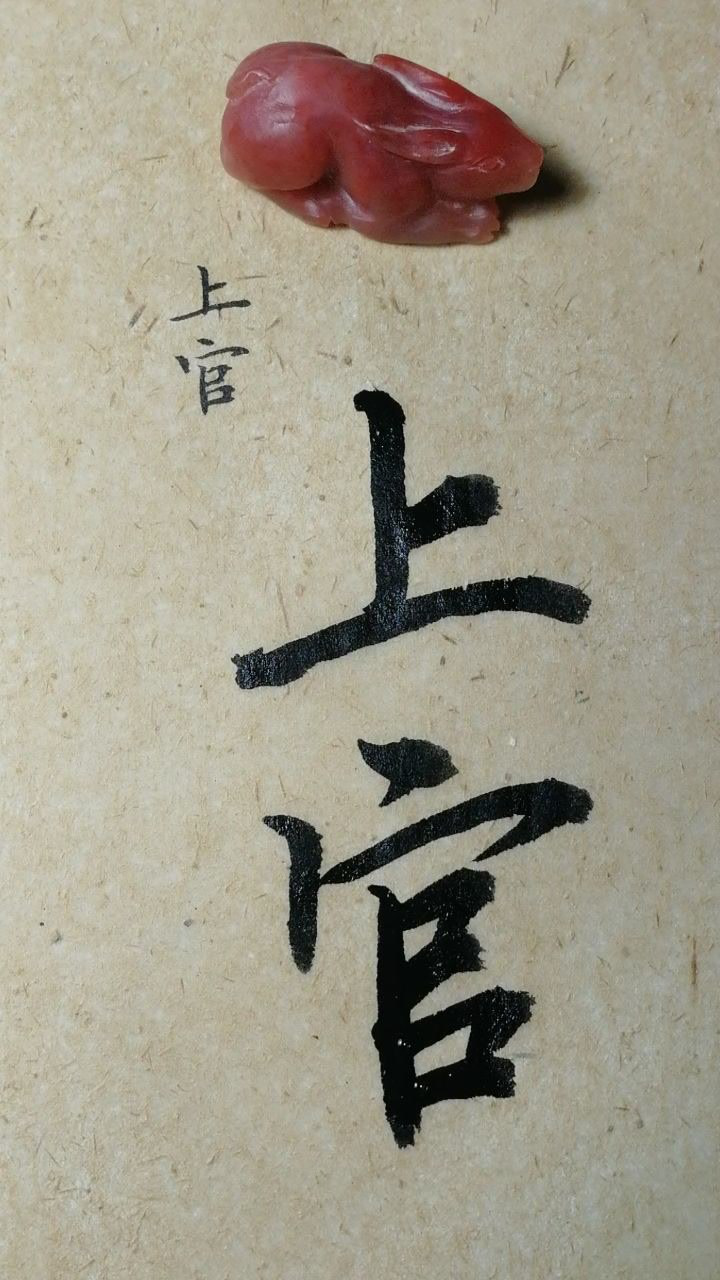 上官
上官